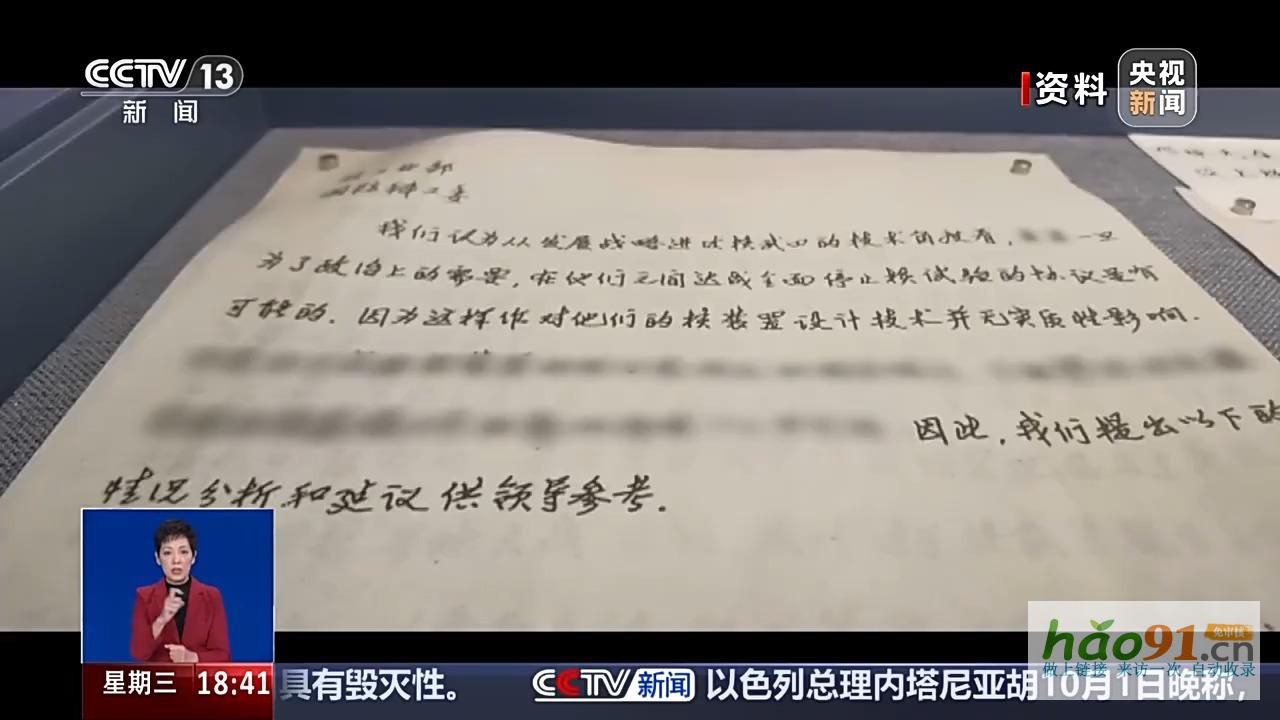 CCTV 13
新闻
资料
央视
新闻
我们认为从发展战略进攻核武
的技术
为了政治上的需要,在他们之间达成全面停止核试验的协议是有
可能的.因为这样作对他们的核装置设计技术并无实质性影响.
因此,我们提出以下的
情况分析和建议供领导参考.
星期三 18:41 具有毁灭性。 CCTV 新闻 以色列总理内塔尼亚胡10月1日晚称,
hao91.cn
免审核
做上链接 来访一次 自动收录